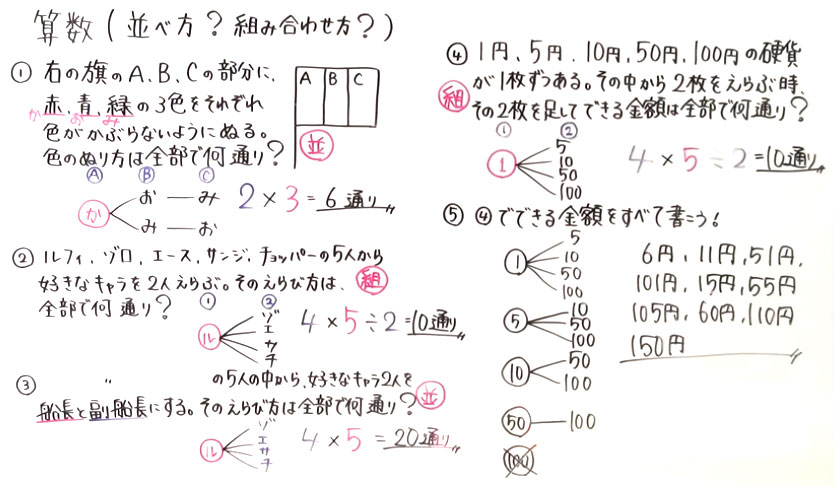 算数(並べ方?組み合わせ方?)
① 右の旗のA、B、Cの部分に、
赤、青、緑の3色をそれぞれ
か お み
色がかぶらないようにぬる。
色のぬり方は全部で何通り?
A B C
並
Ⓐ Ⓑ Ⓒ
か お み
み お
2×3=6通り
② ルフィ、ゾロ、エース、サンジ、チョッパーの5人から
好きなキャラを2人えらぶ。そのえらび方は、
組
全部で何通り?
① ②
ル ゾ エ サ チ
4×5÷2=10通り
③ 〃 の5人の中から、好きなキャラ2人を
船長と副船長にする。そのえらび方は全部で何通り?
並
ル ゾ エ サ チ
4×5=20通り
④ 1円、5円、10円、50円、100円の硬貨
が1枚ずつある。その中から2枚をえらぶ時、
組
その2枚を足してできる金額は全部で何通り?
① ②
1 5 10 50 100
4×5÷2=10通り
⑤ ④でできる金額をすべて書こう!
1 5 10 50 100
5 10 50 100
10 50 100
50 100
100
6円、11円、51円、
101円、15円、55円
105円、60円、110円
150円